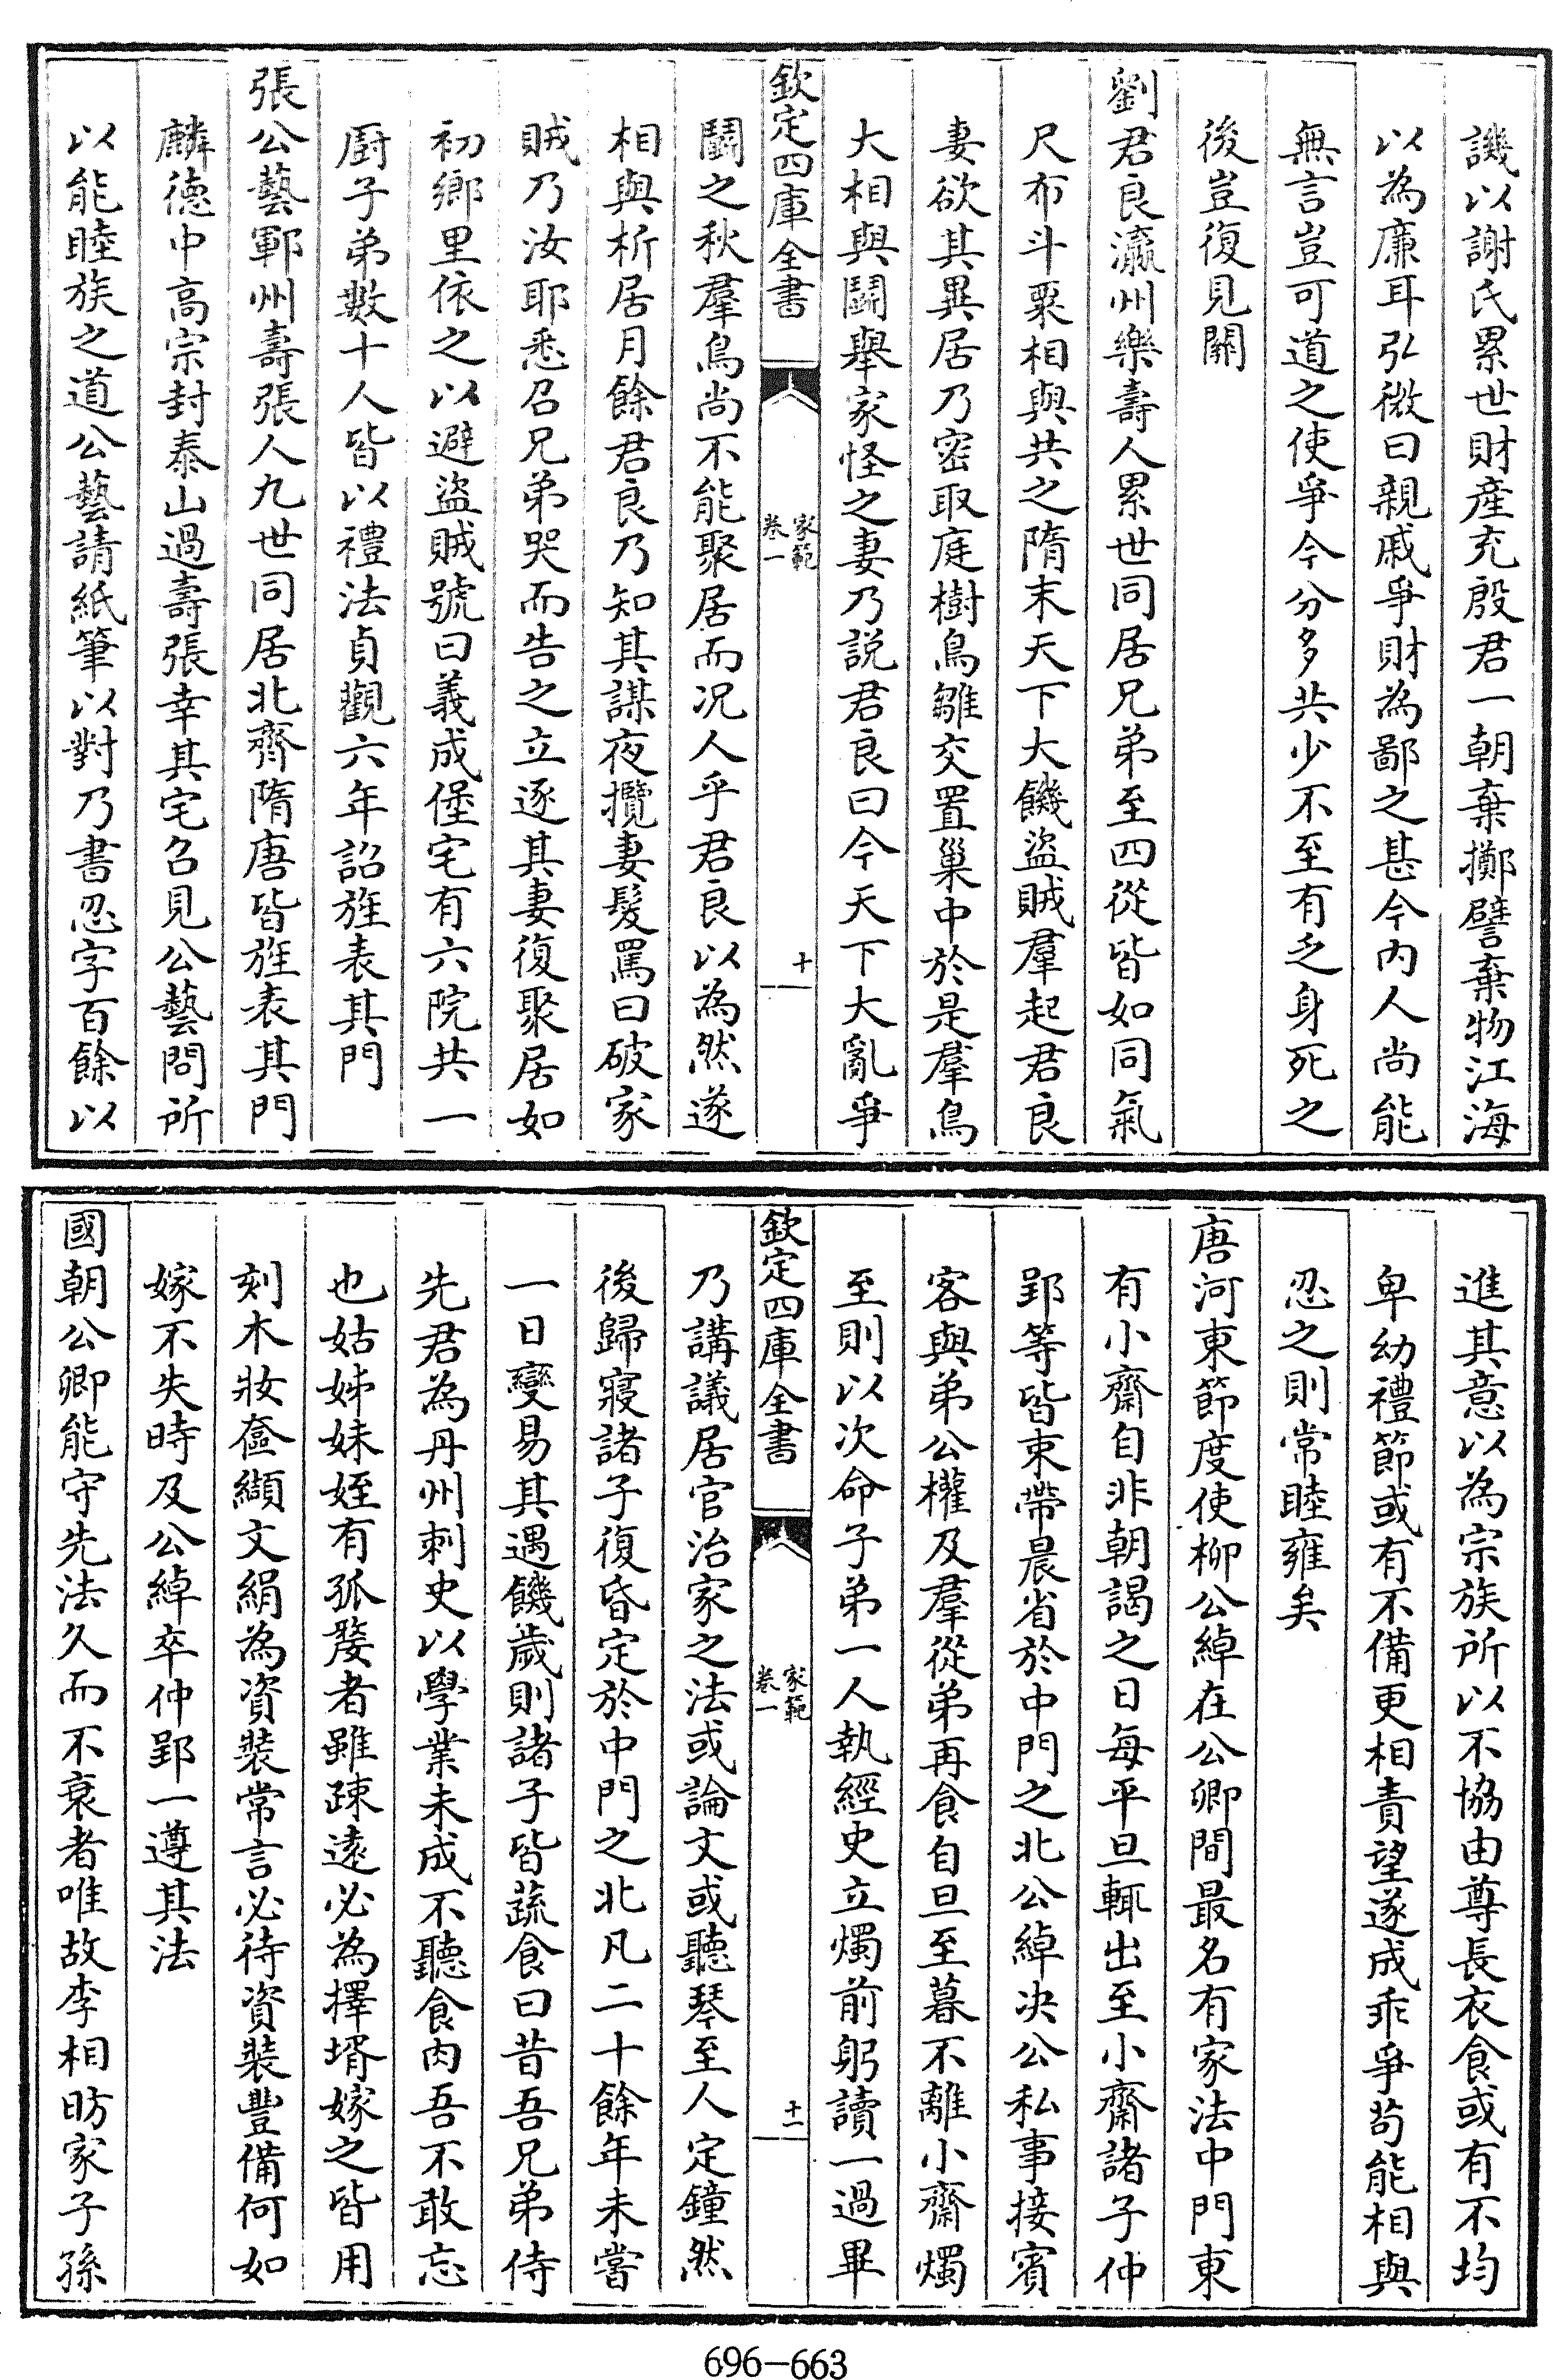 譏以謝氏累世財產充殷君一朝棄擲譬棄物江海
以為廉耳弘微曰親戚爭財為鄙之甚今內人尚能
無言豈可道之使爭今分多共少不至有乏身死之
後豈復見關
劉君良瀛州樂壽人累世同居兄弟至四從皆如同氣
尺布斗粟相與共之隋末天下大饑盜賊羣起君良
妻欲其異居乃密取庭樹鳥雛交置巢中於是羣鳥
大相與鬬舉家怪之妻乃説君良曰今天下大亂爭
欽定四庫全書
家範
卷一
十
鬬之秋羣鳥尚不能聚居而况人乎君良以為然遂
相與析居月餘君良乃知其謀夜攬妻髮罵曰破家
賊乃汝耶悉召兄弟哭而告之立逐其妻復聚居如
初鄉里依之以避盜賊號曰義成堡宅有六院共一
厨子弟數十人皆以禮法貞觀六年詔旌表其門
張公藝鄆州壽張人九世同居北齊隋唐皆旌表其門
麟徳中高宗封泰山過壽張幸其宅召見公藝問所
以能睦族之道公藝請紙筆以對乃書忍字百餘以
進其意以為宗族所以不協由尊長衣食或有不均
卑幼禮節或有不備更相責望遂成乖爭苟能相與
忍之則常睦雍矣
唐河東節度使柳公綽在公卿間最名有家法中門東
有小齋自非朝謁之日每平旦輒出至小齋諸子仲
郢等皆束帶晨省於中門之北公綽决公私事接賓
客與弟公權及羣從弟再食自旦至暮不離小齋燭
至則以次命子弟一人執經史立燭前躬讀一過畢
欽定四庫全書
家範
卷一
十一
乃講議居官治家之法或論文或聽琴至人定鐘然
後歸寢諸子復昏定於中門之北凡二十餘年未嘗
一日變易其遇饑歲則諸子皆蔬食曰昔吾兄弟侍
先君為丹州刺史以學業未成不聽食肉吾不敢忘
也姑姊妹姪有孤嫠者雖疎遠必為擇壻嫁之皆用
刻木妝奩纈文絹為資裝常言必待資裝豐備何如
嫁不失時及公綽卒仲郢一遵其法
國朝公卿能守先法久而不衰者唯故李相昉家子孫
696-663